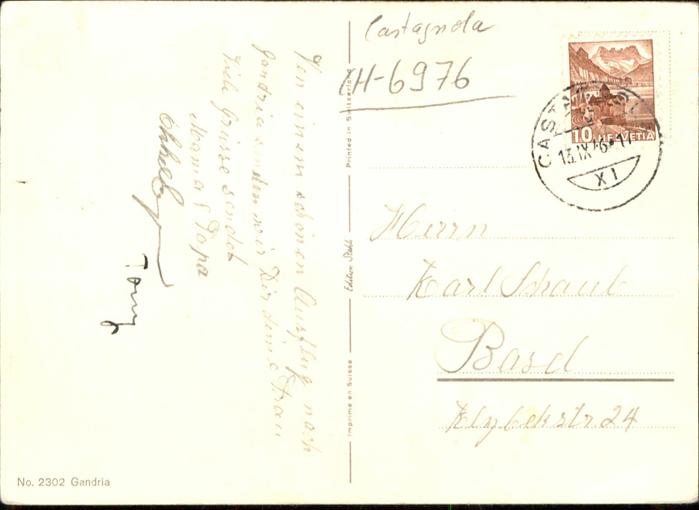 Castagnola
CH-6976
10 HELVETIA
13.IX.46-17
XI
Von einem schönen Ausflug nach
Gandria senden wir Dir deine Frau
viele Grüsse sendet
Mama & Papa
Tony
Herrn
Karl Schaub
Basel
Klybekstr 24
Printed in Switzerland
Edition Stehli
Imprimé en Suisse
No. 2302 Gandria